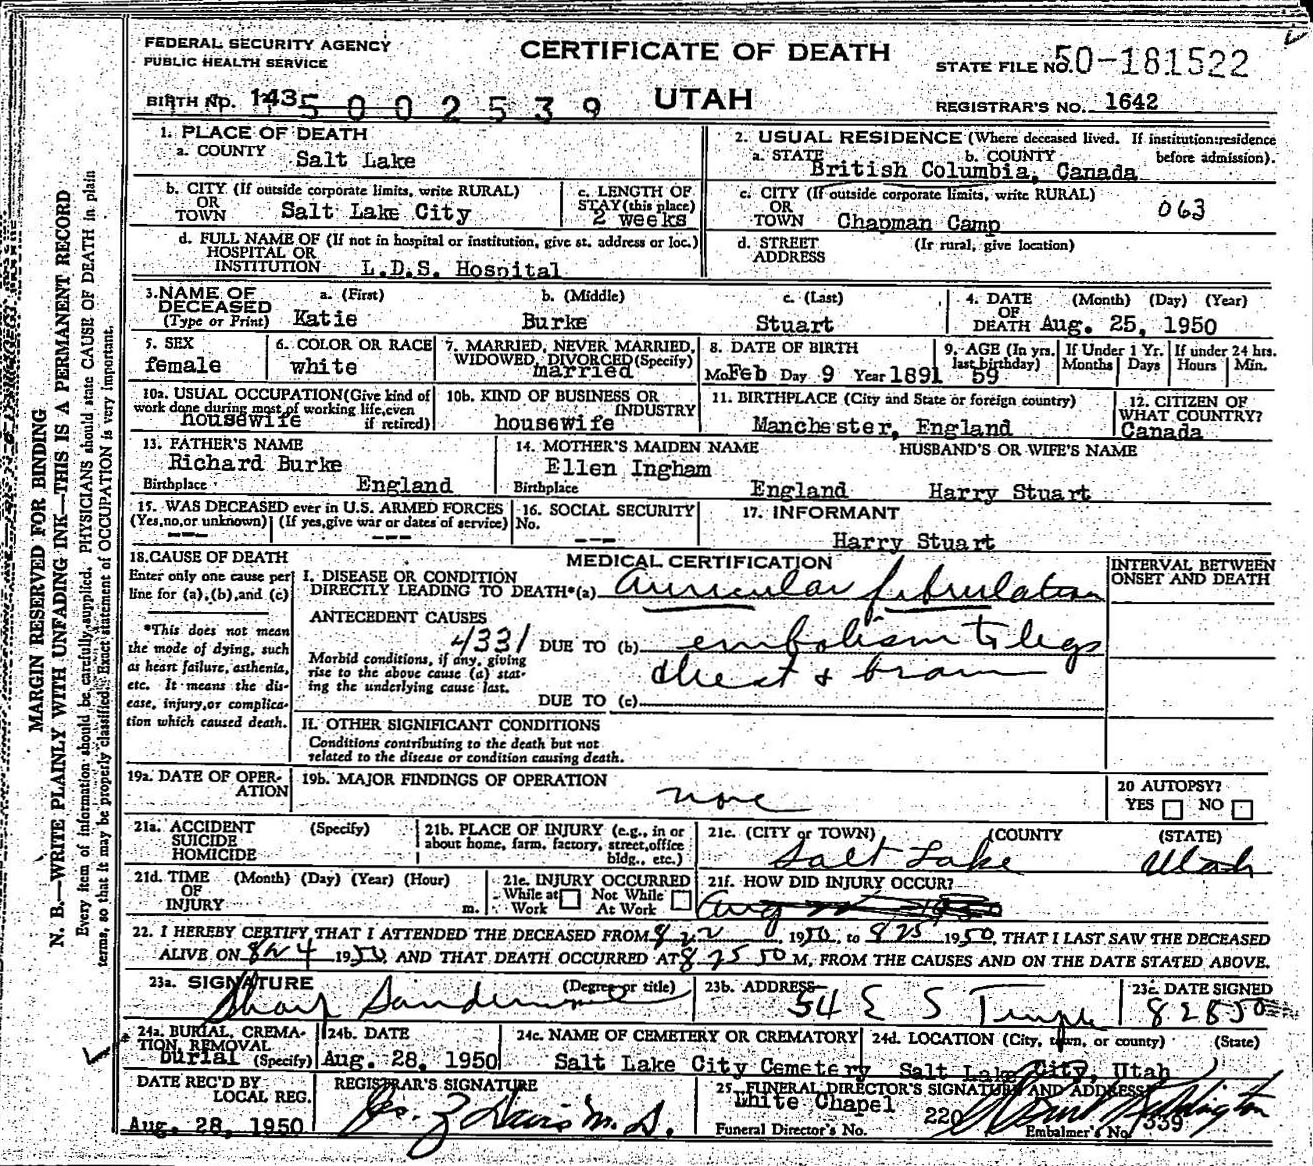 FEDERAL SECURITY AGENCY
PUBLIC HEALTH SERVICE
CERTIFICATE OF DEATH
UTAH
STATE FILE NO. 50-181522
BIRTH NO. 143 5002539
REGISTRAR'S NO. 1642
MARGIN RESERVED FOR BINDING
N. B.—WRITE PLAINLY WITH UNFADING INK—THIS IS A PERMANENT RECORD
Every item of information should be carefully supplied. PHYSICIANS should state CAUSE OF DEATH in plain
terms, so that it may be properly classified. Exact statement of OCCUPATION is very important.
1. PLACE OF DEATH
a. COUNTY Salt Lake
b. CITY (If outside corporate limits, write RURAL)
OR
TOWN Salt Lake City
c. LENGTH OF
STAY (this place)
2 weeks
d. FULL NAME OF (If not in hospital or institution, give st. address or loc.)
HOSPITAL OR
INSTITUTION L.D.S. Hospital
2. USUAL RESIDENCE (Where deceased lived. If institution:residence
before admission).
a. STATE b. COUNTY
British Columbia, Canada
c. CITY (If outside corporate limits, write RURAL)
OR
TOWN Chapman Camp
063
d. STREET (If rural, give location)
ADDRESS
3. NAME OF DECEASED
(Type or Print)
a. (First) b. (Middle) c. (Last)
Katie Burke Stuart
4. DATE (Month) (Day) (Year)
OF
DEATH Aug. 25, 1950
5. SEX
female
6. COLOR OR RACE
white
7. MARRIED, NEVER MARRIED,
WIDOWED, DIVORCED (Specify)
married
8. DATE OF BIRTH
Mo Feb Day 9 Year 1891
9. AGE (In yrs. last birthday)
59
If Under 1 Yr.
Months Days
If under 24 hrs.
Hours Min.
10a. USUAL OCCUPATION (Give kind of
work done during most of working life, even
if retired)
housewife
10b. KIND OF BUSINESS OR
INDUSTRY
housewife
11. BIRTHPLACE (City and State or foreign country)
Manchester, England
12. CITIZEN OF
WHAT COUNTRY?
Canada
13. FATHER'S NAME
Richard Burke
Birthplace England
14. MOTHER'S MAIDEN NAME
Ellen Ingham
Birthplace England
HUSBAND'S OR WIFE'S NAME
Harry Stuart
15. WAS DECEASED ever in U.S. ARMED FORCES
(Yes, no, or unknown) (If yes, give war or dates of service)
--- ---
16. SOCIAL SECURITY
No. ---
17. INFORMANT
Harry Stuart
18. CAUSE OF DEATH
Enter only one cause per
line for (a), (b), and (c)
*This does not mean
the mode of dying, such
as heart failure, asthenia,
etc. It means the dis-
ease, injury, or complica-
tion which caused death.
MEDICAL CERTIFICATION
INTERVAL BETWEEN
ONSET AND DEATH
I. DISEASE OR CONDITION
DIRECTLY LEADING TO DEATH*(a) auricular fibrulation
ANTECEDENT CAUSES
4331
DUE TO (b) embolism to legs
chest & brain
Morbid conditions, if any, giving
rise to the above cause (a) stat-
ing the underlying cause last.
DUE TO (c)
II. OTHER SIGNIFICANT CONDITIONS
Conditions contributing to the death but not
related to the disease or condition causing death.
19a. DATE OF OPER-
ATION
19b. MAJOR FINDINGS OF OPERATION
none
20 AUTOPSY?
YES NO
21a. ACCIDENT (Specify)
SUICIDE
HOMICIDE
21b. PLACE OF INJURY (e.g., in or
about home, farm, factory, street, office
bldg., etc.)
21c. (CITY or TOWN) (COUNTY (STATE)
Salt Lake Utah
21d. TIME (Month) (Day) (Year) (Hour)
OF
INJURY m.
21e. INJURY OCCURRED
While at Work Not While At Work
21f. HOW DID INJURY OCCUR?
22. I HEREBY CERTIFY THAT I ATTENDED THE DECEASED FROM 8 22 1950, to 8 25 1950, THAT I LAST SAW THE DECEASED
ALIVE ON 8 24 1950, AND THAT DEATH OCCURRED AT 8 25 50 M, FROM THE CAUSES AND ON THE DATE STATED ABOVE.
23a. SIGNATURE (Degree or title)
23b. ADDRESS
54 E S Temple
23c. DATE SIGNED
8 28 50
24a. BURIAL, CREMA-
TION, REMOVAL
burial (Specify)
24b. DATE
Aug. 28, 1950
24c. NAME OF CEMETERY OR CREMATORY
Salt Lake City Cemetery
24d. LOCATION (City, town, or county) (State)
Salt Lake City, Utah
DATE REC'D BY
LOCAL REG.
Aug. 28, 1950
REGISTRAR'S SIGNATURE
25. FUNERAL DIRECTOR'S SIGNATURE AND ADDRESS
White Chapel
Funeral Director's No. 220
Embalmer's No. 339